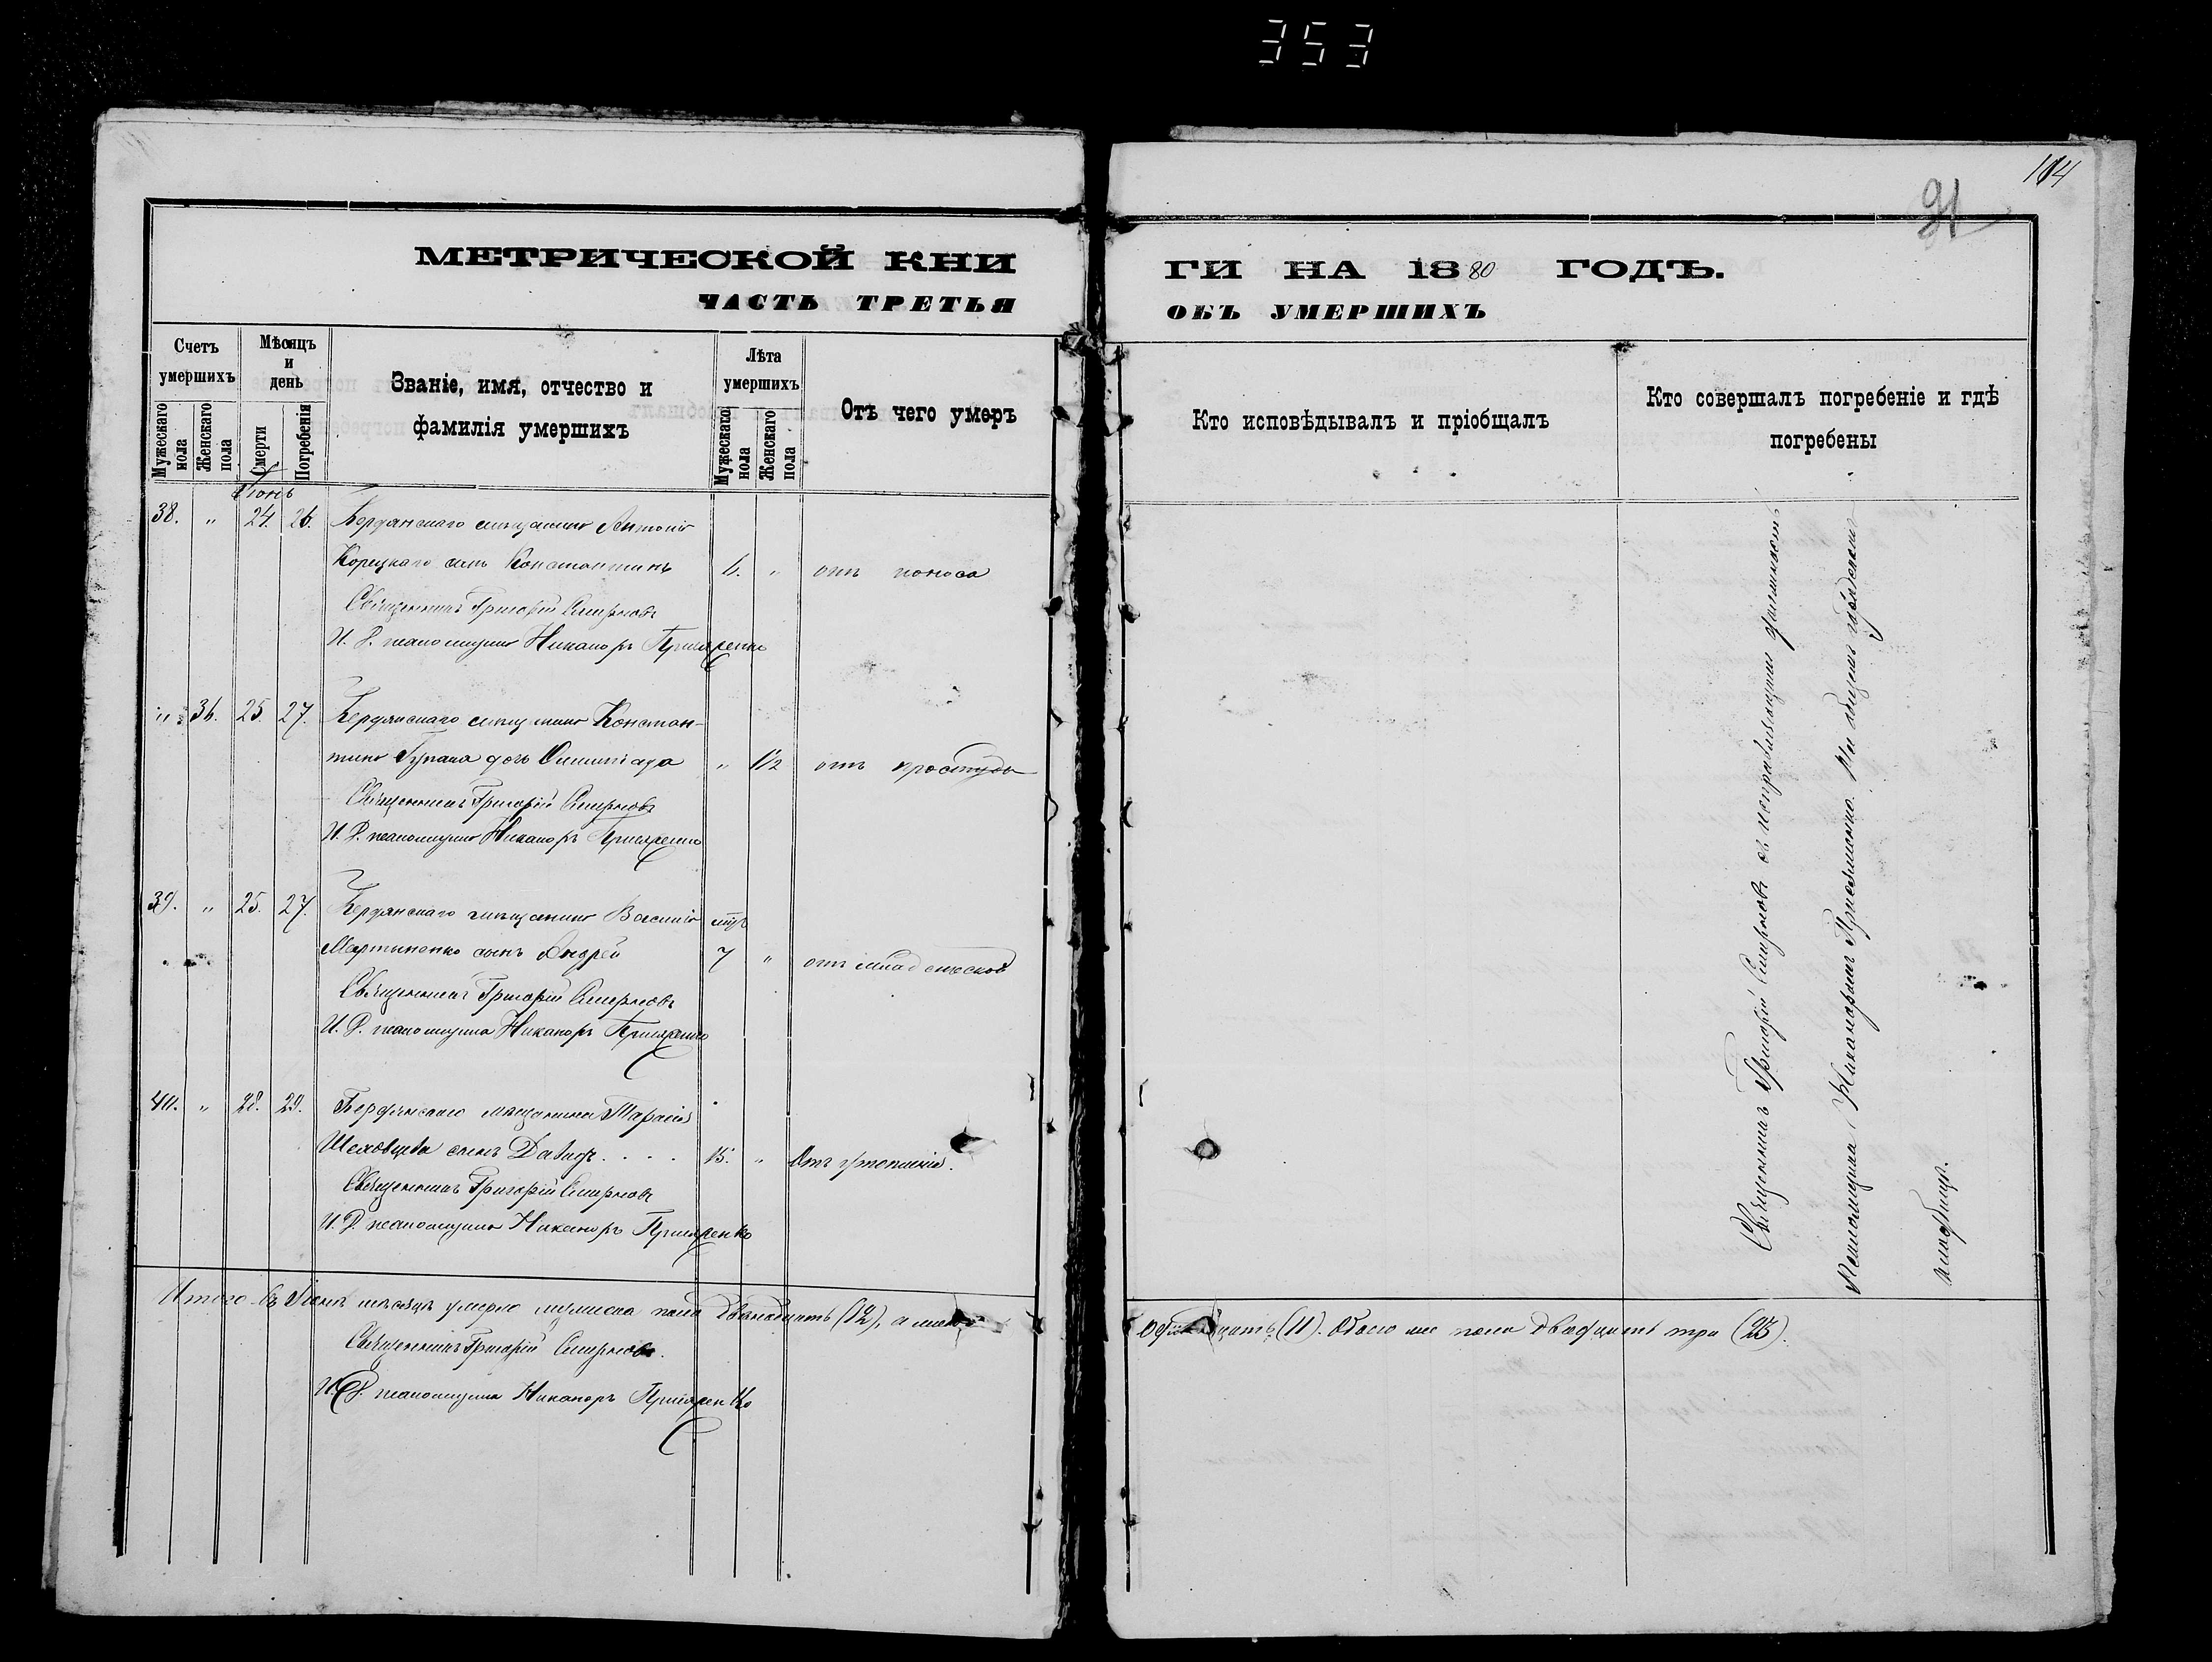 353
104
91
МЕТРИЧЕСКОЙ КНИ
ГИ НА 1880 ГОДЪ.
ЧАСТЬ ТРЕТЬЯ
ОБЪ УМЕРШИХЪ
Счетъ умершихъ
Мужескаго пола
Женскаго пола
Мѣсяцъ и день
Смерти
Погребенія
Званіе, имя, отчество и
фамилія умершихъ
Лѣта умершихъ
Мужескаго пола
Женскаго пола
Отъ чего умеръ
Кто исповѣдывалъ и пріобщалъ
Кто совершалъ погребеніе и гдѣ
погребены
Іюнь
38. " 24. 26. Бердянскаго мѣщанина Антонія
Корецкаго сынъ Константинъ " отъ поноса
Священникъ Григорій Смирновъ
И. Д. псаломщика Никаноръ
" 36. 25. 27. Бердянскаго мѣщанина Констан-
тина дочь " 1/2 отъ простуды
Священникъ Григорій Смирновъ
И. Д. псаломщика Никаноръ
39. " 25. 27. Бердянскаго мѣщанина Василія
Мартыненко сынъ Андрей 7 " отъ младенческой
Священникъ Григорій Смирновъ
И. Д. псаломщика Никаноръ
40. " 28. 29. Бердянскаго мѣщанина Тарасія
сынъ Давидъ . . . . 15. " Отъ утопленія.
Священникъ Григорій Смирновъ
И. Д. псаломщика Никаноръ
Итого въ Іюнѣ мѣсяцѣ умерло мужеска пола двѣнадцать (12), а женска
одиннадцать (11). Обоего же пола двадцать три (23).
Священникъ Григорій Смирновъ.
И. Д. псаломщика Никаноръ
Священникъ Григорій Смирновъ съ исправляющимъ должность
Псаломщика Никаноромъ На общемъ городскомъ
кладбищѣ.